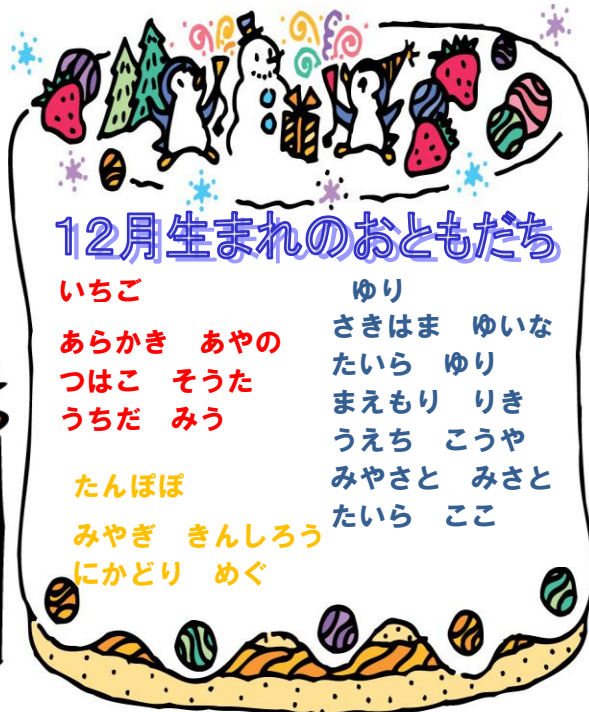 12月生まれのおともだち
いちご
あらかき　あやの
つはこ　そうた
うちだ　みう
たんぽぽ
みやぎ　きんしろう
にかどり　めぐ
ゆり
さきはま　ゆいな
たいら　ゆり
まえもり　りき
うえち　こうや
みやさと　みさと
たいら　ここ